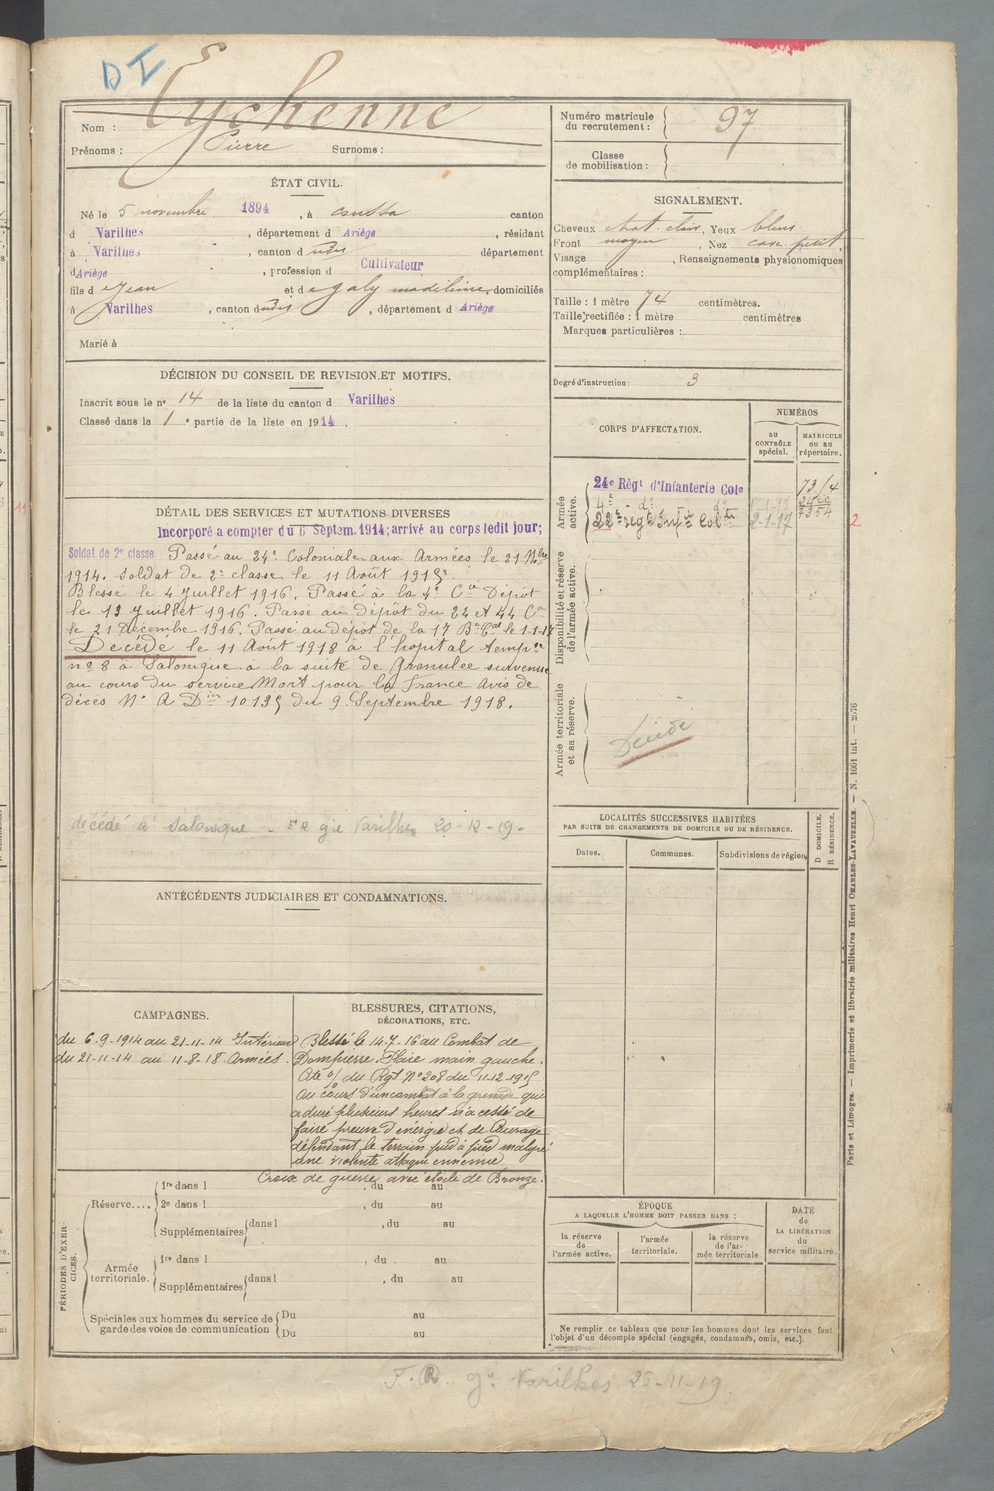 DI
Eychenne
Nom :
Prénoms : Pierre Surnoms :
Numéro matricule du recrutement : 97
Classe de mobilisation :
ÉTAT CIVIL.
Né le 5 novembre 1894, à canton
d Varilhes, département d Ariège, résidant
à Varilhes, canton d udis département
d Ariège, profession d Cultivateur
fils d e Jean et d e galy madeleine, domiciliés
à Varilhes, canton d udis, département d Ariège
Marié à
SIGNALEMENT.
Cheveux chat. clair, Yeux bleus
Front moyen, Nez cave petit,
Visage , Renseignements physionomiques
complémentaires :
Taille : 1 mètre 74 centimètres.
Taille rectifiée : 1 mètre centimètres
Marques particulières :
Degré d'instruction : 3
DÉCISION DU CONSEIL DE REVISION ET MOTIFS.
Inscrit sous le n° 14 de la liste du canton d Varilhes
Classé dans la 1e partie de la liste en 1914.
DÉTAIL DES SERVICES ET MUTATIONS DIVERSES
Incorporé à compter du 6 Septem. 1914; arrivé au corps ledit jour;
Soldat de 2e classe Passé au 24e Coloniale aux Armées le 21 Nbre
1914. Soldat de 2e classe le 11 Août 1915
Blessé le 4 Juillet 1916. Passé à la 4e Cie Dépôt
le 13 Juillet 1916. Passé au dépôt du 24 et 44 Cal
le 21 Décembre 1916. Passé au dépôt de la 17 Bde Cale le 1-1-17
Décédé le 11 Août 1918 à l'hopital tempre
n° 8 à Salonique à la suite de Granulée survenue
au cours du service Mort pour la France Avis de
décès N° A Din 10135 du 9 Septembre 1918.
décédé à Salonique - gie Varilhes 20-12-19-
CORPS D'AFFECTATION.
NUMÉROS
au contrôle spécial.
MATRICULE ou au répertoire.
Armée active.
24e Régt d'Infanterie Cole 7314
4e - d° - d°
22e régt Infie Colle 2-1-17 7354
2
Disponibilité et réserve de l'armée active.
Armée territoriale et sa réserve.
Décédé
LOCALITÉS SUCCESSIVES HABITÉES
PAR SUITE DE CHANGEMENTS DE DOMICILE OU DE RÉSIDENCE.
Dates. Communes. Subdivisions de région
D DOMICILE.
R RÉSIDENCE.
ANTÉCÉDENTS JUDICIAIRES ET CONDAMNATIONS.
CAMPAGNES.
du 6-9-1914 au 21-11-14 Intérieur
du 21-11-14 au 11-8-18 Armées.
BLESSURES, CITATIONS,
DÉCORATIONS, ETC.
Blessé le 14-7-16 au Combat de
Dompierre. Plaie main gauche.
Cité o/ du Rgt N° 208 du 11-12-1915
Au cours d'un combat à la grenade qui
a duré plusieurs heures n'a cessé de
faire preuve d'énergie et de Courage
défendant le terrain pied à pied malgré
une violente attaque ennemie
Croix de guerre avec étoile de Bronze.
PÉRIODES D'EXERCICES.
Réserve....
1re dans l , du au
2e dans l , du au
Supplémentaires dans l , du au
Armée territoriale.
1re dans l , du au
Supplémentaires dans l , du au
Spéciales aux hommes du service de garde des voies de communication
Du au
Du au
ÉPOQUE
A LAQUELLE L'HOMME DOIT PASSER DANS :
la réserve de l'armée active.
l'armée territoriale.
la réserve de l'armée territoriale
DATE
de
LA LIBÉRATION
du
service militaire.
Ne remplir ce tableau que pour les hommes dont les services font
l'objet d'un décompte spécial (engagés, condamnés, omis, etc.).
Paris et Limoges. — Imprimerie et librairie militaires Henri CHARLES-LAVAUZELLE — N. 1001 int. — 25/76
F.R. gie Varilhes 25-11-19.